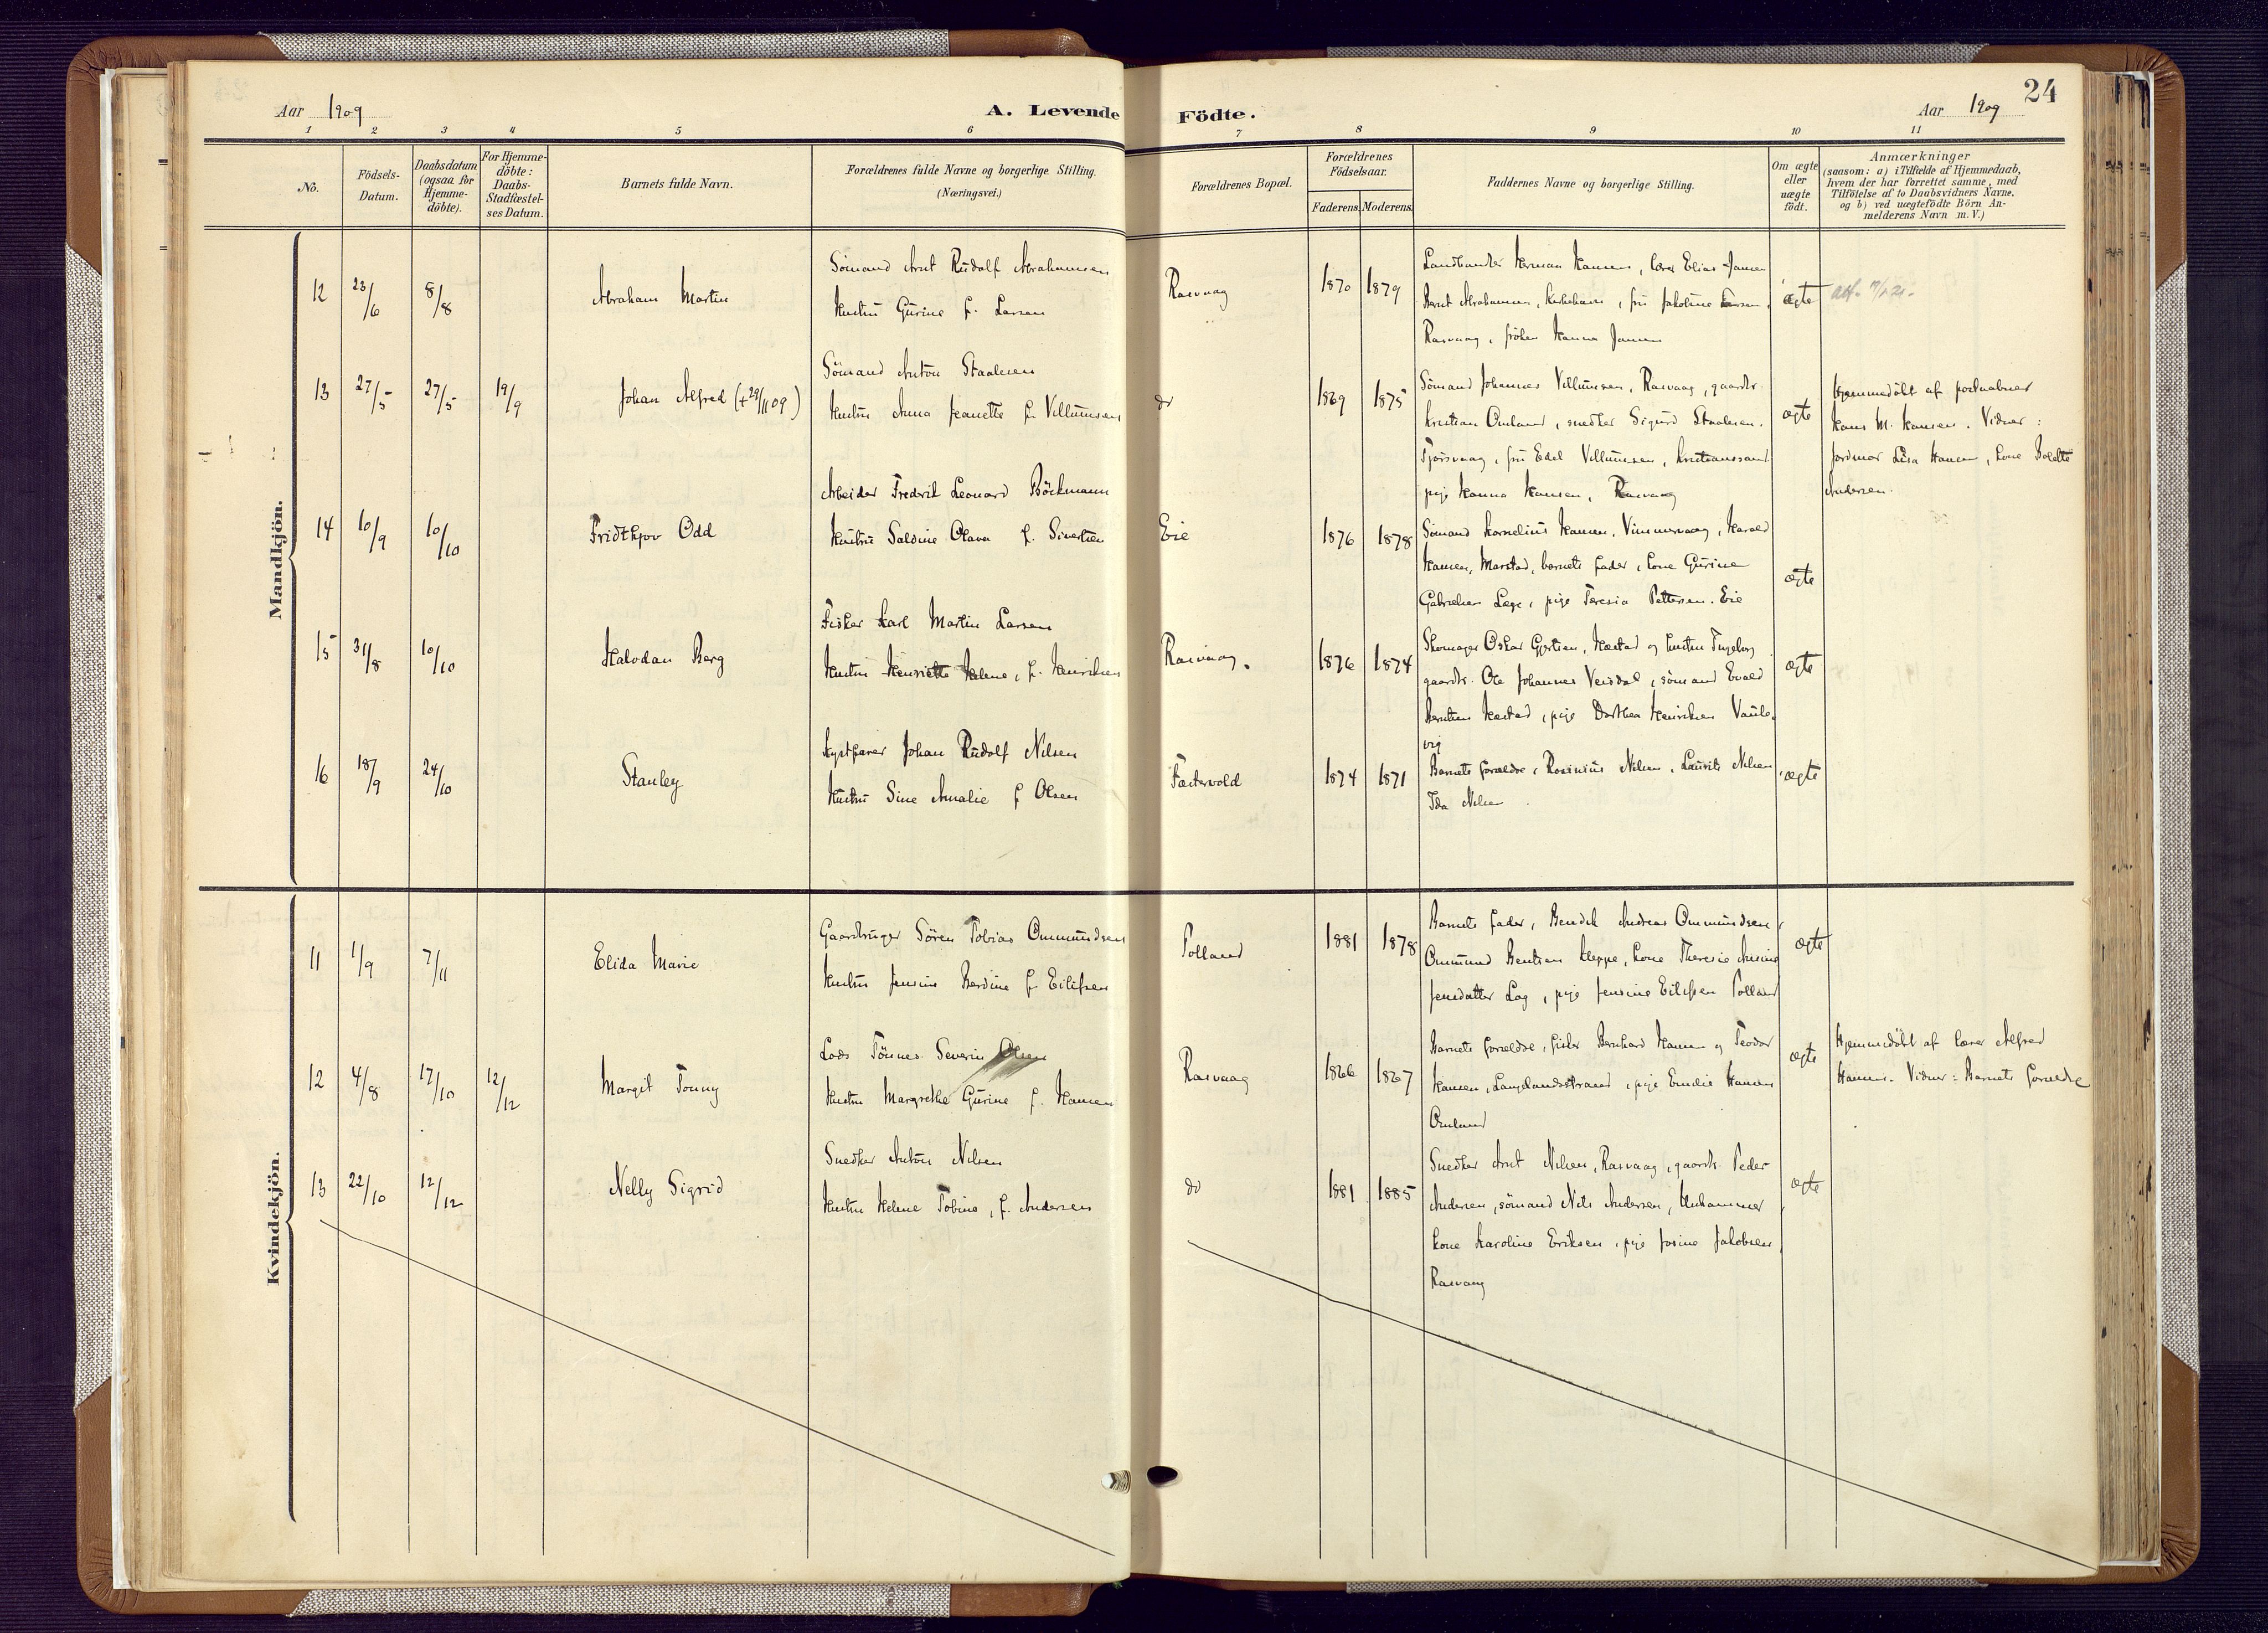 24
Aar 1909
A. Levende Födte.
Aar 1909
1 2 3 4 5 6 7 8 9 10 11
No.
Födsels-
Datum.
Daabsdatum
(ogsaa for
Hjemme-
döbte).
For Hjemme-
döbte:
Daabs-
Stadfæstel-
ses Datum.
Barnets fulde Navn.
Forældrenes fulde Navne og borgerlige Stilling.
(Næringsvei.)
Forældrenes Bopæl.
Forældrenes
Födselsaar.
Faderens Moderens
Faddernes Navne og borgerlige Stilling.
Om ægte
eller
uægte
födt.
Anmærkninger
(saasom: a) i Tilfælde af Hjemmedaab,
hvem der har forrettet samme, med
Tilföielse af to Daabsvidners Navne.
og b) ved uægtefödte Börn An-
melderens Navn m. V.)
Mandkjön.
12 23/6 8/8 Abraham Martin
Sömand Arnt Rudolf Abrahamsen
Hustru Gurine f. Larsen
Rasvaag 1870 1879
Landhandler Herman Hansen, lærer Elias Jansen
Bernt Abrahamsen, Kirkehavn, fru Jakobine Larsen,
Rasvaag, fröken Hanna Jansen
ægte
13 27/5 27/5 19/9 Johan Alfred (+29/11 09)
Sömand Anton Staalesen
Hustru Anna Jeanette f. Villumsen
do 1869 1875
Sömand Johannes Villumsen, Rasvaag, gaardbr.
Kristian Omland, snedker Sigurd Staalesen.
Tjörsvaag, fru Edel Villumsen, Kristianssand
pige Hanna Hansen, Rasvaag
ægte
Hjemmedöbt af postaabner
Hans M. Hansen. Vidner:
Jordmor Lisa Hansen, kone Bolette
Andersen.
14 10/9 10/10 Fridtkjov Odd
Arbeider Fredrik Leonard Böckmann
Hustru Saldine Olava f. Sivertsen
Eie 1876 1878
Sömand Kornelius Hansen, Vimmervaag, Harald
Hansen, Marstad, barnets fader, kone Gurine
Gabrielsen Lage, pige Teresia Pettersen. Eie
ægte
15 31/8 10/10 Halvdan Berg
Fisker Karl Martin Larsen
Hustru Henriette Helene, f. Henriksen
Rasvaag. 1876 1874
Skomager Oskar Gjertsen, Hæstad og hustru Ingeborg
gaardbr. Ole Johannes Veisdal, sömand Evald
Berntsen Hæstad, pige Dorthea Henriksen Vaule-
vig
ægte
16 18/9 24/10 Stanley
Kystfarer Johan Rudolf Nilsen
Hustru Sine Amalie f Olsen
Fæstervold 1874 1871
Barnets forældre, Rosinius Nilsen, Laurits Nilsen
Ida Nilsen
ægte
Kvindekjön.
11 1/9 7/11 Elida Marie
Gaardbruger Sören Tobias Ommundsen
Hustru Jensine Berdine f Eilifsen
Polland 1881 1878
Barnets fader, Bendik Andreas Ommundsen,
Ommund Bentsen Kleppe, kone Theresie Ansine
Jensdatter Log, pige Jensine Eilifsen Polland
ægte
12 4/8 17/10 12/12 Margit Tonny
Lods Tönnes Severin Olsen
Hustru Margrethe Gurine f. Hansen
Rasvaag 1866 1867
Barnets forældre, fisker Bernhard Hansen og Teodor
Hansen, Langlandsstrand, pige Emelie Hansen
Omland
ægte
Hjemmedöbt af lærer Alfred
Hansen. Vidner: Barnets forældre
13 22/10 12/12 Nelly Sigrid
Snedker Anton Nilsen
Hustru Helene Tobine, f. Andersen
do 1881 1885
Snedker Arnt Nilsen, Rasvaag, gaardbr. Peder
Andersen, sömand Nils Andersen, Urhammer
kone Karoline Eriksen, pige Josine Jakobsen,
Rasvaag
ægte